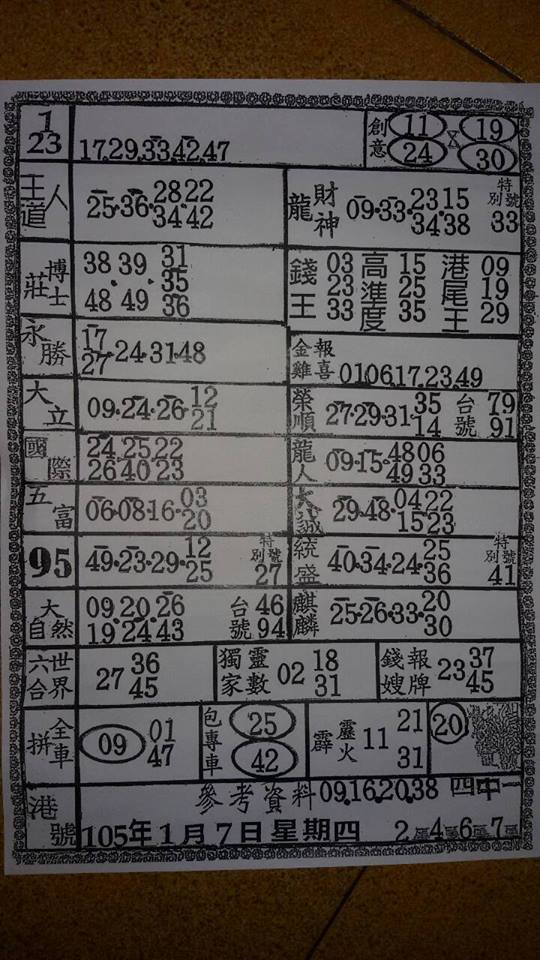 1
23
17,29,33,42,47
創意 11 24 X 19 30
王道人 25·36· 28 22
34 42
龍 財神 09·33· 23 15
34 38
特別號 33
莊博士 38 39 31
35
48 49 36
錢王 03 23 33
高準度 15 25 35
港尾王 09 19 29
永勝 17
27·24·31·48
金雞報喜 01 06 17 23 49
大立 09·24·26· 12
21
榮順 27·29·31· 35
14
台號 79
91
國際 24,25,22
26 40 23
龍人 09·15· 48 06
49 33
五富 06·08·16· 03
20
大誠 29·48· 04 22
15 23
95 49·23·29· 12
25
特別號 27
統盛 40·34·24· 25
36
特別號 41
大自然 09 20 26
19 24 43
台號 46
94
麒麟 25·26·33· 20
30
六合世界 27 36
45
獨家靈數 02 18
31
錢嫂報牌 23 37
45
全車拼 09 01
47
包專車 25
42
霹靂火 11 21
31
20
港號
參考資料 09.16.20.38 四中一
105年1月7日星期四 2尾4尾6尾7尾